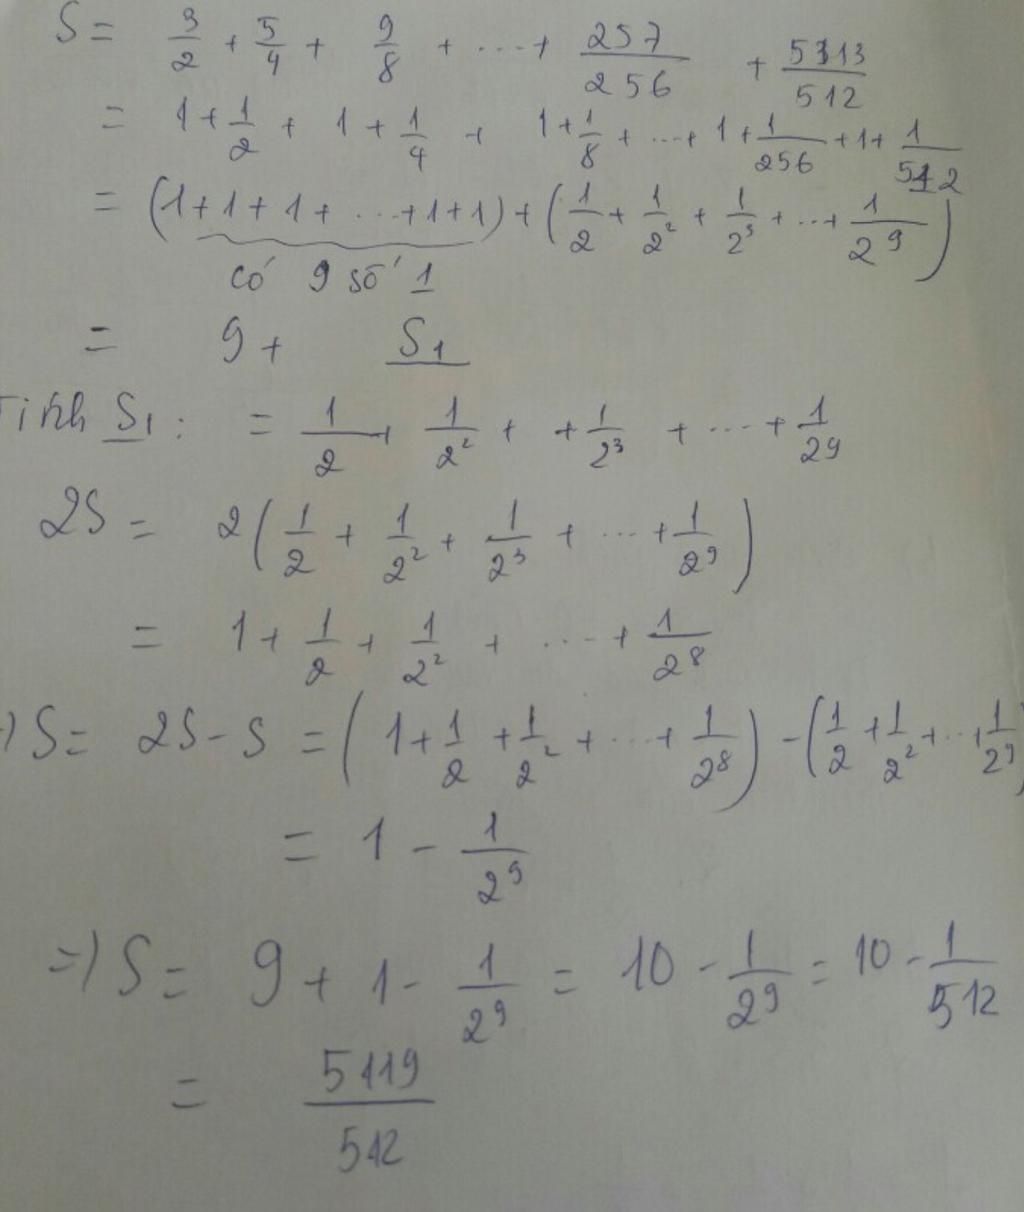 S = 3/2 + 5/4 + 9/8 + ... + 257/256 + 5313/512
= 1 + 1/2 + 1 + 1/4 + 1 + 1/8 + ... + 1 + 1/256 + 1 + 1/512
= (1 + 1 + 1 + ... + 1 + 1) + (1/2 + 1/2² + 1/2³ + ... + 1/2⁹)
có 9 số 1
= 9 + S₁
Tính S₁ : = 1/2 + 1/2² + + 1/2³ + ... + 1/2⁹
2S = 2(1/2 + 1/2² + 1/2³ + ... + 1/2⁹)
= 1 + 1/2 + 1/2² + ... + 1/2⁸
⇒ S = 2S - S = (1 + 1/2 + 1/2² + ... + 1/2⁸) - (1/2 + 1/2² + ... + 1/2⁹)
= 1 - 1/2⁹
=) S = 9 + 1 - 1/2⁹ = 10 - 1/2⁹ = 10 - 1/512
= 5119/512